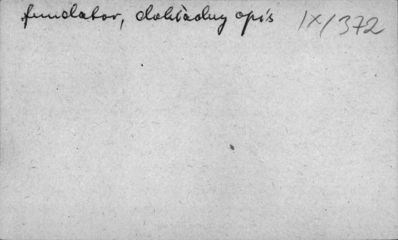 fundator, dokładny opis IX/372